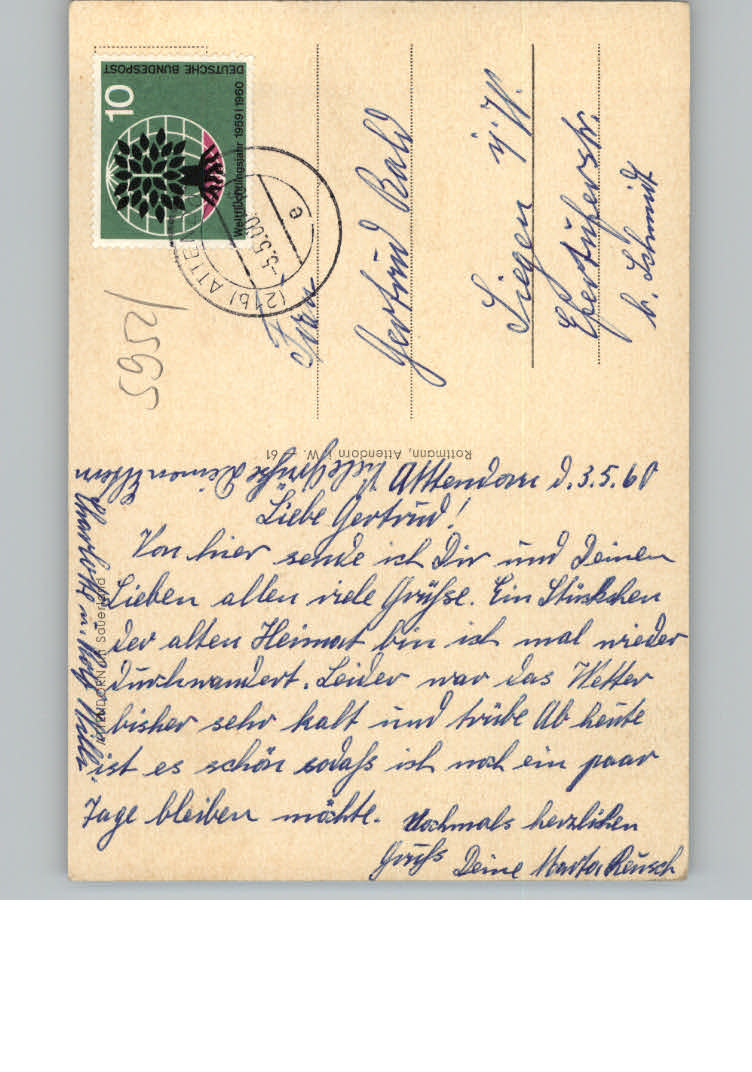 DEUTSCHE BUNDESPOST
10
Weltflüchtlingsjahr 1959 | 1960
(21b) ATTENDORN
-3.5.60
e
5952/
Frau
Gertrud Bald
Siegen i./W.
Eiserfelderstr.
b. Schmidt
Rottmann, Attendorn i. W. 61
ATTENDORN Sauerland
Attendorn d. 3.5.60
Liebe Gertrud!
Von hier sende ich Dir und Deinen
Lieben allen viele Grüße. Ein Stückchen
der alten Heimat bin ich mal wieder
durchwandert. Leider war das Wetter
bisher sehr kalt und trübe Ab heute
ist es schön sodaß ich noch ein paar
Tage bleiben möchte. Nochmals herzlichen
Gruß Deine Marta Reusch
Deinen Eltern
Charlotte u.